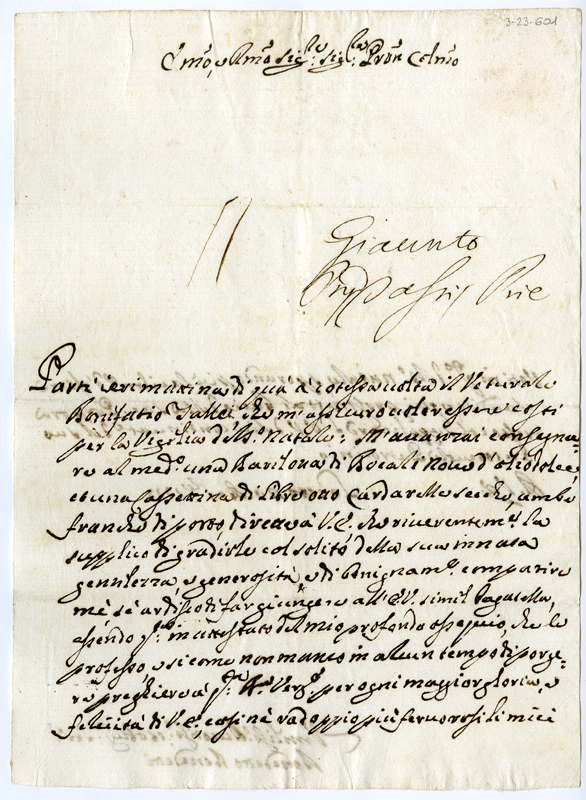 3-23-601
Emo, e Rmo Sigre Sigre Pron Colmo
Giacinto
Parti ieri mattina di quà à cotessa volta il Veturale
Bonifatio Vallei che m'assicurò voler essere costì
per la Vigilia del Sto Natale: M'avanzai consegna=
re al medo una Barilona di Bocali nove d'oliodolce,
et una Cassettina di Libre otto Cardarelle secche, ambe
franche di porto, dirette à V.E. che riverentemte la
supplico di gradirle col solito della sua innata
gentilezza, e generosità, e di benignamte compatire
mè sè ardisco di far giungere all'E.V. simil bagatella,
essendo pr in attestato del mio profondo ossequio, che le
professo e si come non manco in alcun tempo di porge=
re preghiere à per ogni maggior gloria, e
felicità di V.E., cosi ne radoppio più fervorosi li miei